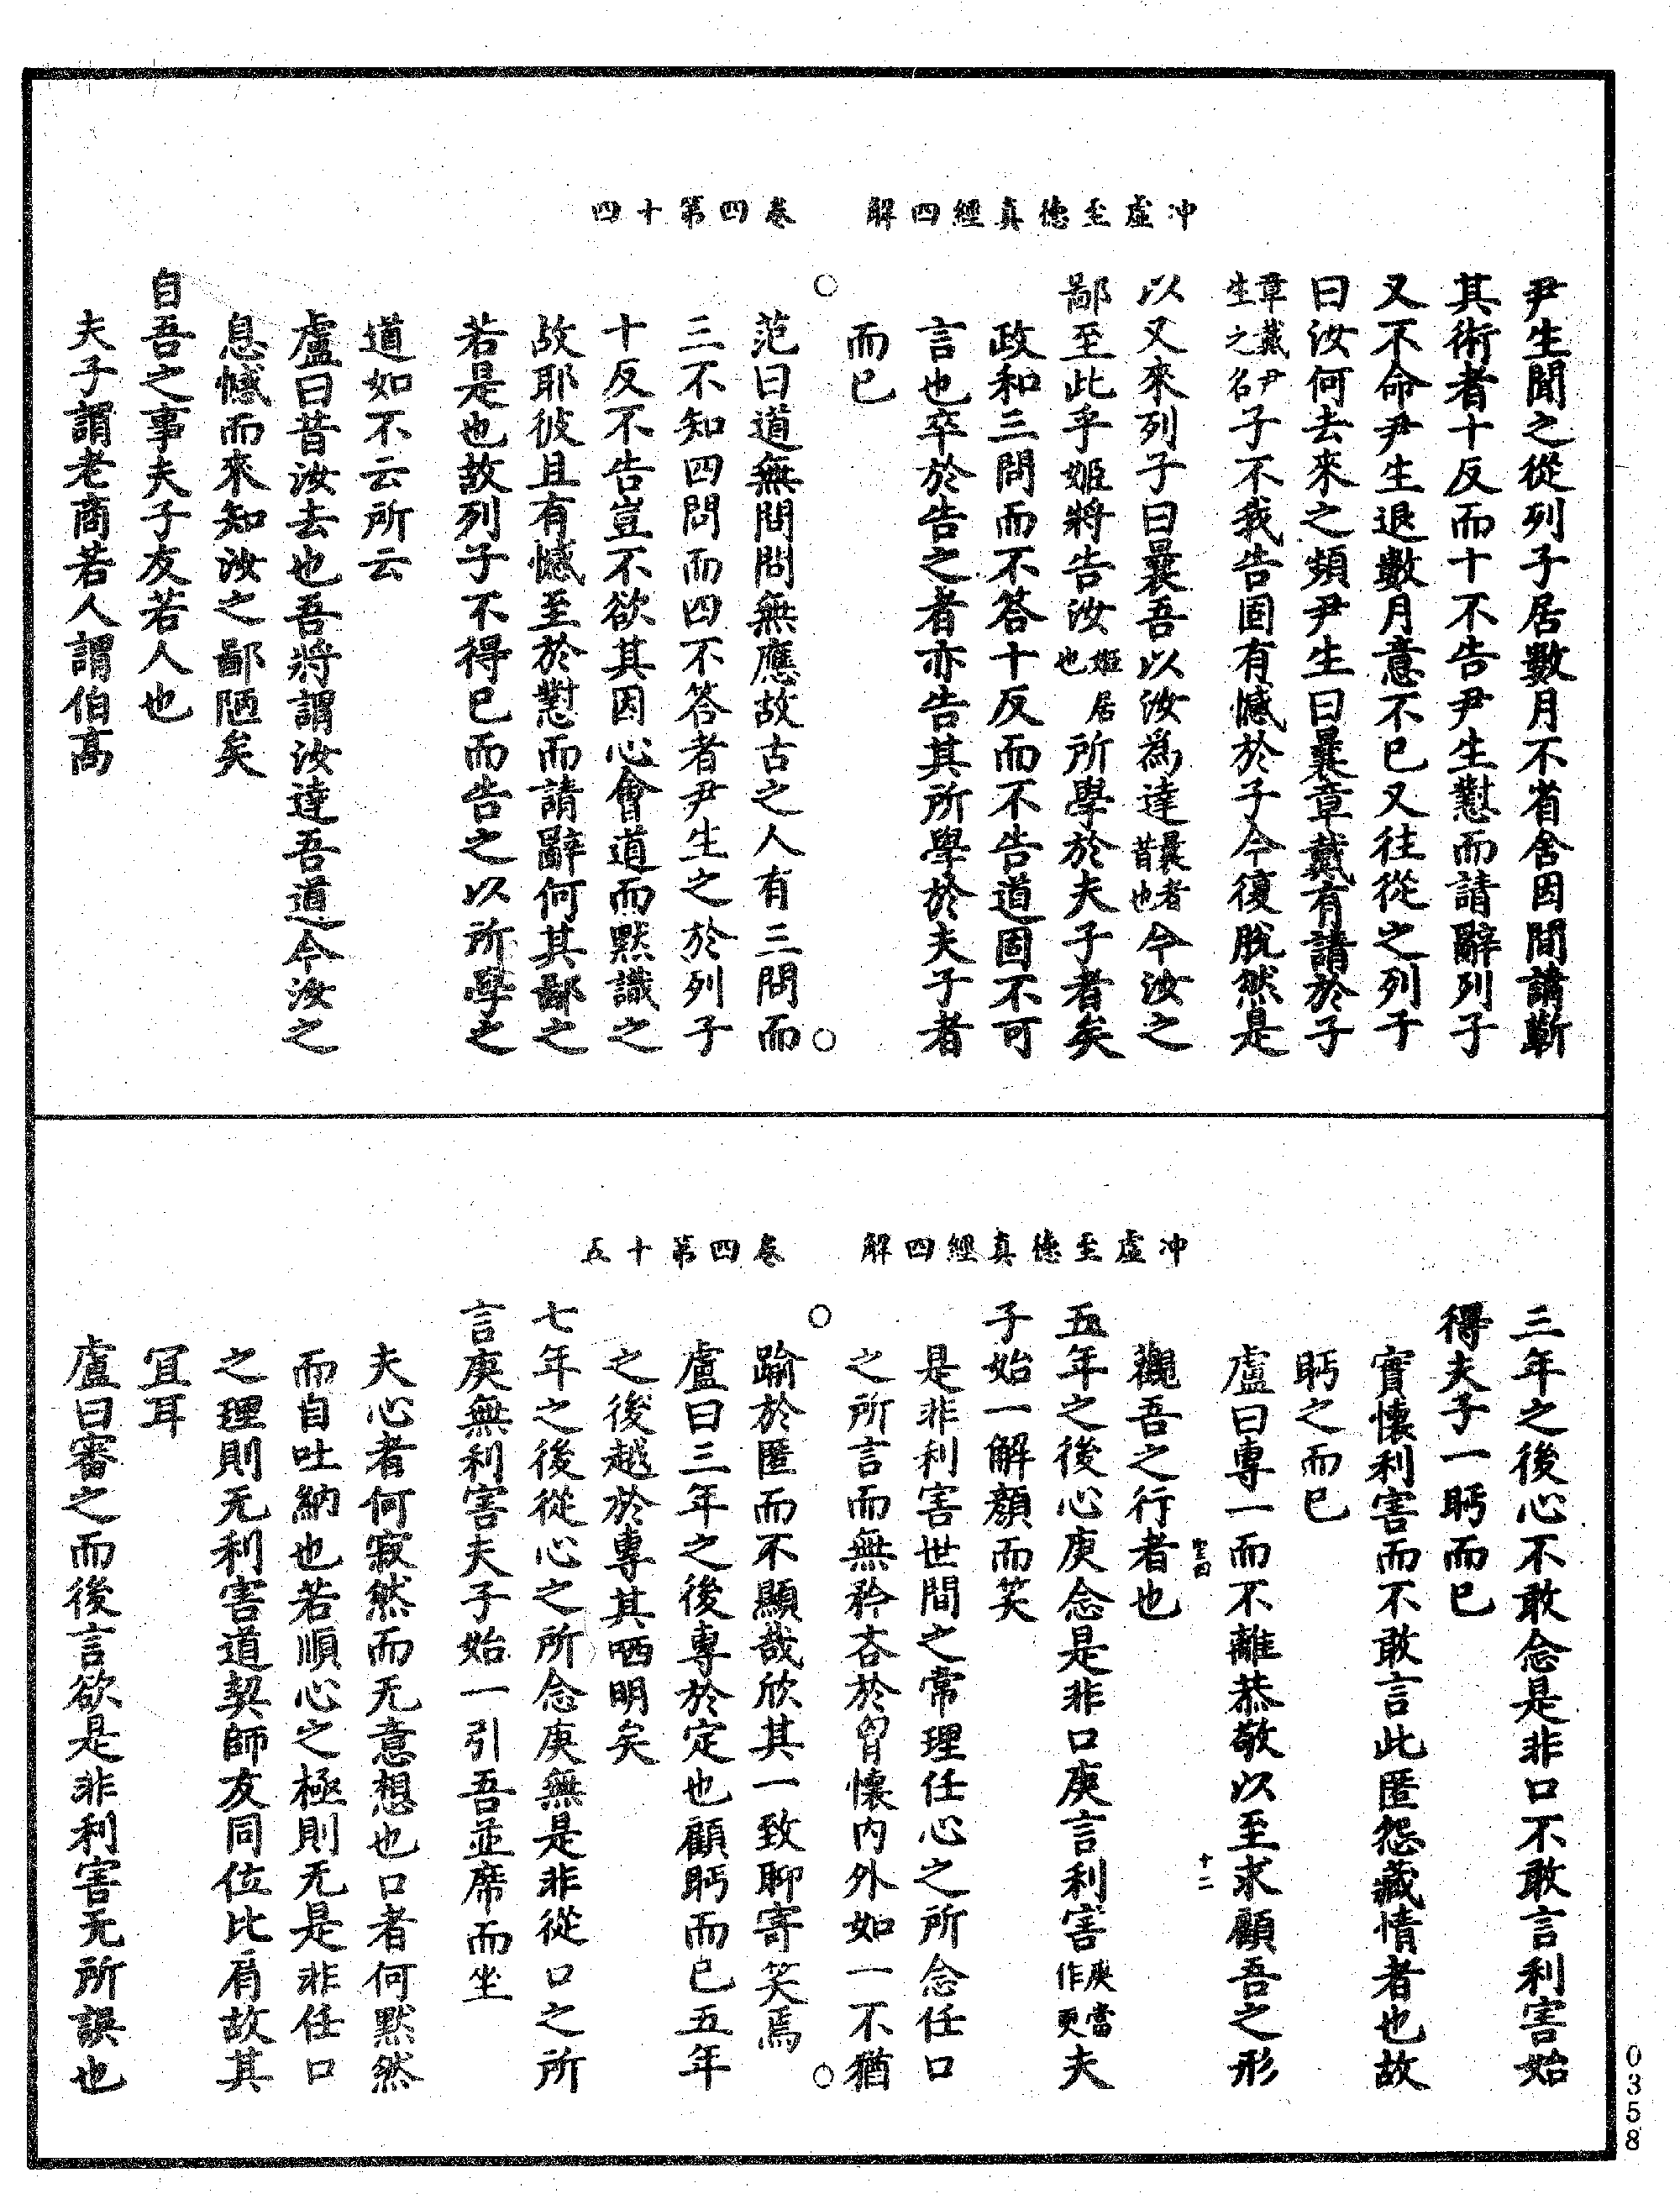 冲虛至德真經四解　卷四第十四
尹生聞之從列子居數月不省舍因間請蘄
其術者十反而十不告尹生懟而請辭列子
又不命尹生退數月意不已又往從之列子
曰汝何去來之頻尹生曰曩章戴有請於子
章戴尹生之名子不我告固有憾於子今復脫然是
以又來列子曰曩吾以汝爲達曩者昔也今汝之
鄙至此乎姬將告汝姬居也所學於夫子者矣
政和三問而不答十反而不告道固不可
言也卒於告之者亦告其所學於夫子者
而已
○范曰道無問問無應故古之人有三問而○
三不知四問而四不答者尹生之於列子
十反不告豈不欲其因心會道而默識之
故耶彼且有憾至於懟而請辭何其鄙之
若是也故列子不得已而告之以所學之
道如不云所云
盧曰昔汝去也吾將謂汝達吾道今汝之
息憾而來知汝之鄙陋矣
自吾之事夫子友若人也
夫子謂老商若人謂伯高
冲虛至德真經四解　卷四第十五
三年之後心不敢念是非口不敢言利害始
得夫子一眄而已
實懷利害而不敢言此匿怨藏情者也故
眄之而已
盧曰專一而不離恭敬以至求顧吾之形
聖四　十二
觀吾之行者也
五年之後心庚念是非口庚言利害庚當作更夫
子始一解顏而笑
是非利害世間之常理任心之所念任口
之所言而無矜吝於胷懷內外如一不猶
○踰於匿而不顯哉欣其一致聊寄笑焉○
盧曰三年之後專於定也顧眄而已五年
之後越於專其哂明矣
七年之後從心之所念庚無是非從口之所
言庚無利害夫子始一引吾並席而坐
夫心者何寂然而无意想也口者何默然
而自吐納也若順心之極則无是非任口
之理則无利害道契師友同位比肩故其
冝耳
盧曰審之而後言欲是非利害无所誤也
0358